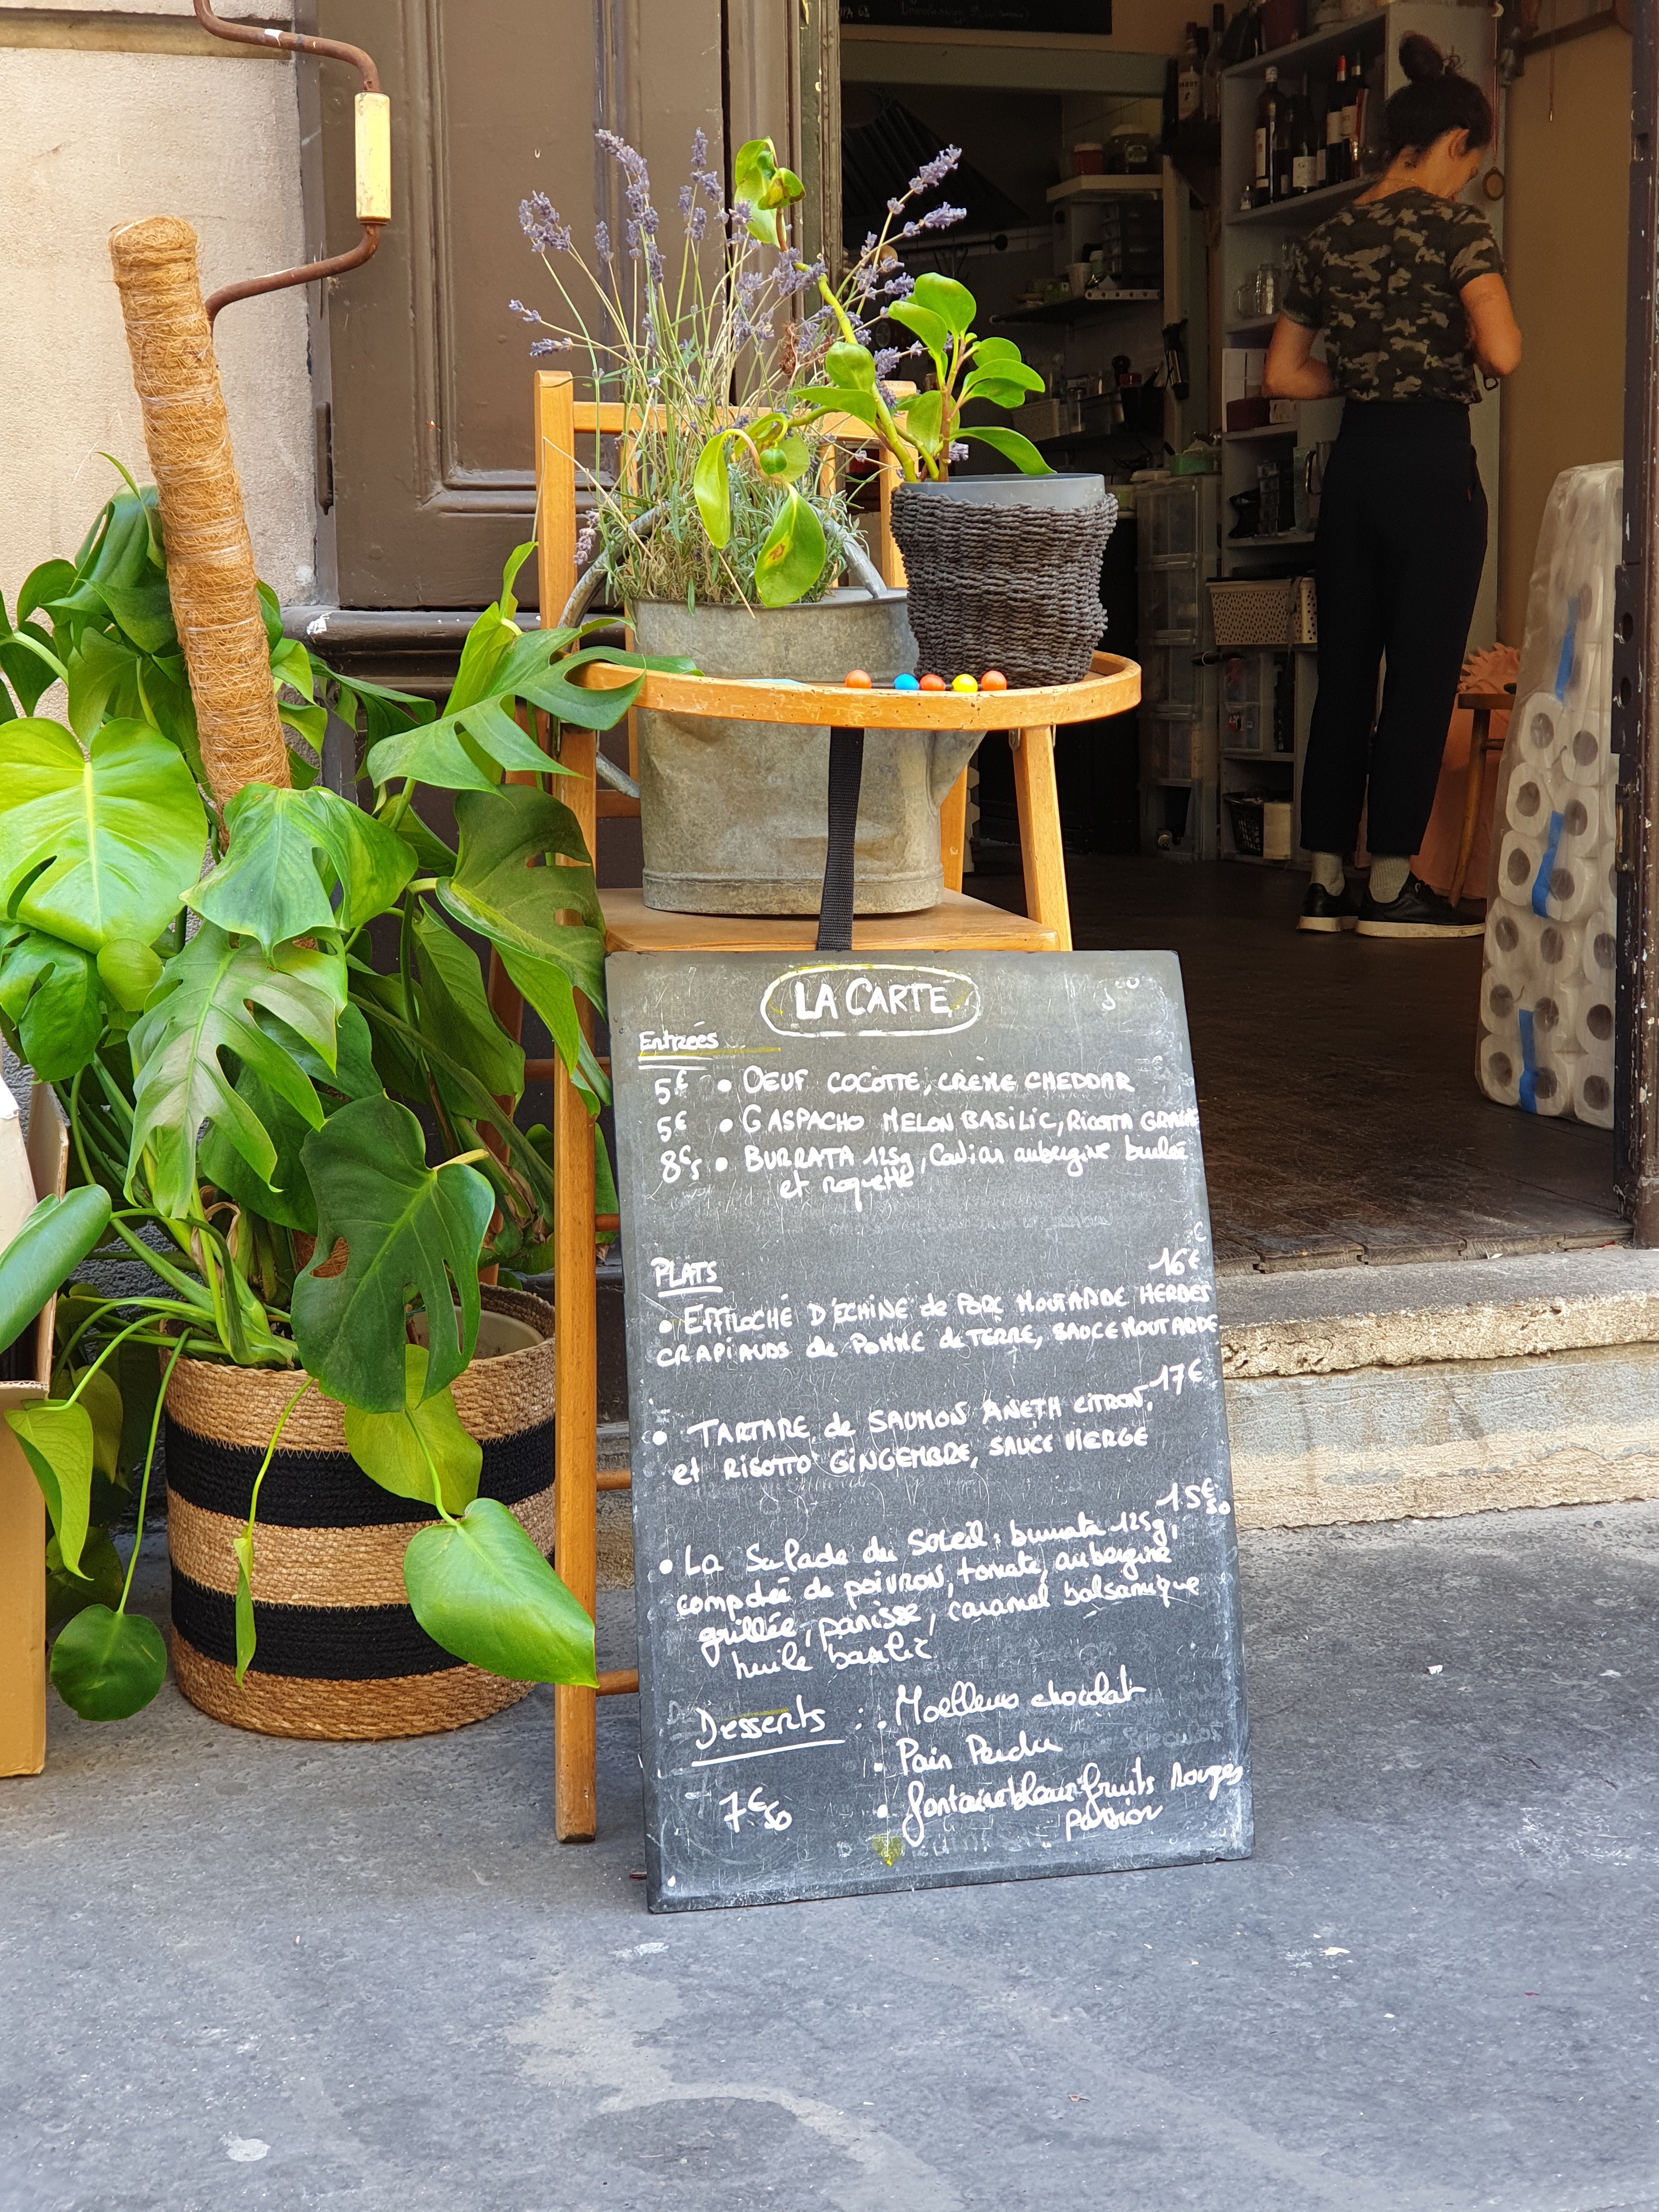 LA CARTE
Entrées
5€ • OEUF COCOTTE, CRÈME CHEDDAR
5€ • GASPACHO MELON BASILIC, RICOTTA
8€5 • BURRATA 125g, Caviar aubergine brulée
et roquette
PLATS
16€
• EFFILOCHÉ D'ÉCHINE de PORC MOUTARDE HERBES
CRAPIAUDS de POMME de TERRE, SAUCE MOUTARDE
17€
• TARTARE de SAUMON ANETH CITRON,
et RISOTTO GINGEMBRE, SAUCE VIERGE
15€50
• La Salade du Soleil : burrata 125g,
compotée de poivron, tomate, aubergine
grillée, panisse, caramel balsamique
huile basilic
Desserts : • Moelleux chocolat
• Pain Perdu
7€50 • fontainebleau fruits rouges
passion